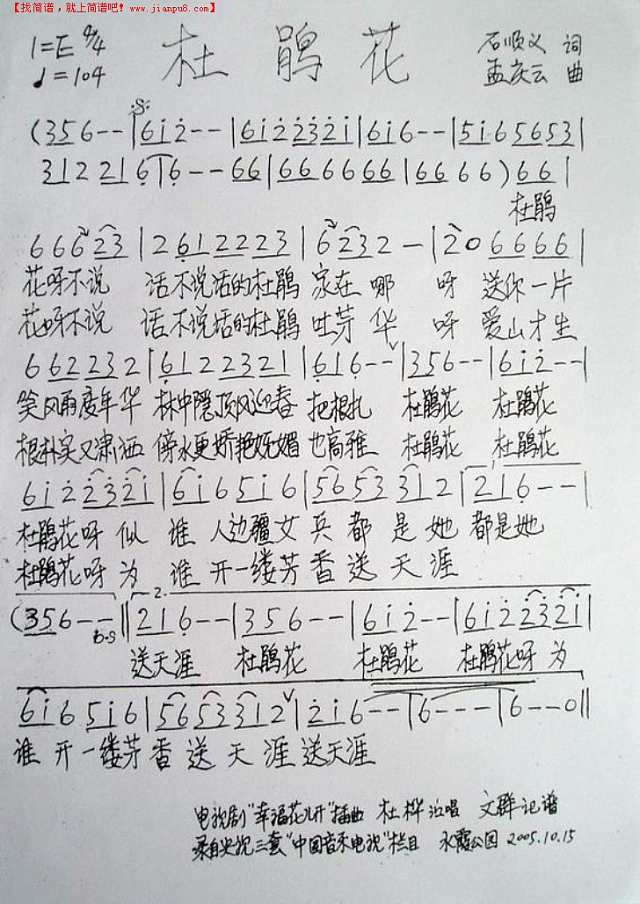 【找简谱，就上简谱吧！www.jianpu8.com】
1=E 4/4 杜鹃花 石顺义 词
♩=104 孟庆云 曲
(356-- | 6i2-- | 6i2232i | 6i6-- | 5i656531 |
312 2166-- 66 | 66 6666 66 | 66 66 66) 66 |
杜鹃
666 23 | 2 61 2223 | 6 232 - | 20 6666 |
花呀不说 话不说话的杜鹃 家在 哪 呀 送你一片
花呀不说 话不说话的杜鹃 吐芽 华 呀 爱山才生
662232 | 6122321 | 616-- | 356-- | 6i2-- |
笑风雨度年华 林中隐顶风迎春 把根扎 杜鹃花 杜鹃花
根朴实又潇洒 傍水更娇艳妩媚 也高雅 杜鹃花 杜鹃花
6i2232i | 6i65i6 | 5653312 | 216-- |
杜鹃花呀 似 谁 人边疆女 兵 都 是 她 都是她
杜鹃花呀 为 谁 开一缕芳 香 送 天 涯
(356-- D.S || 2. 216-- | 356-- | 6i2-- | 6i2232i |
送天涯 杜鹃花 杜鹃花 杜鹃花呀 为
6i65i6 | 5653312 | 2i6-- | 6--- | 6--0 ||
谁 开一缕芳 香 送 天 涯 送天涯
电视剧"幸福花儿开"插曲 杜桦 演唱 文群记谱
录自央视三套"中国音乐电视"栏目 永霞公园 2005.10.15